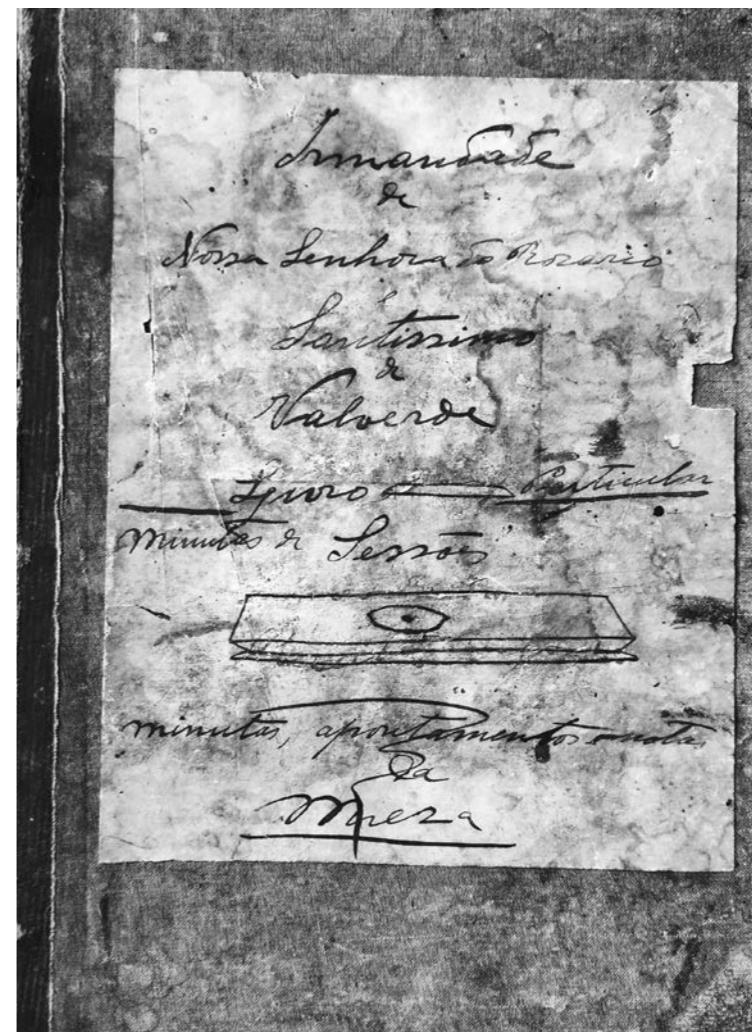 Irmandade
de
Nossa Senhora do Rozario
e
Santissimo
de
Valverde
Livro Particular
Minutas de Sessões
minutas, apontamentos e notas
da
Meza